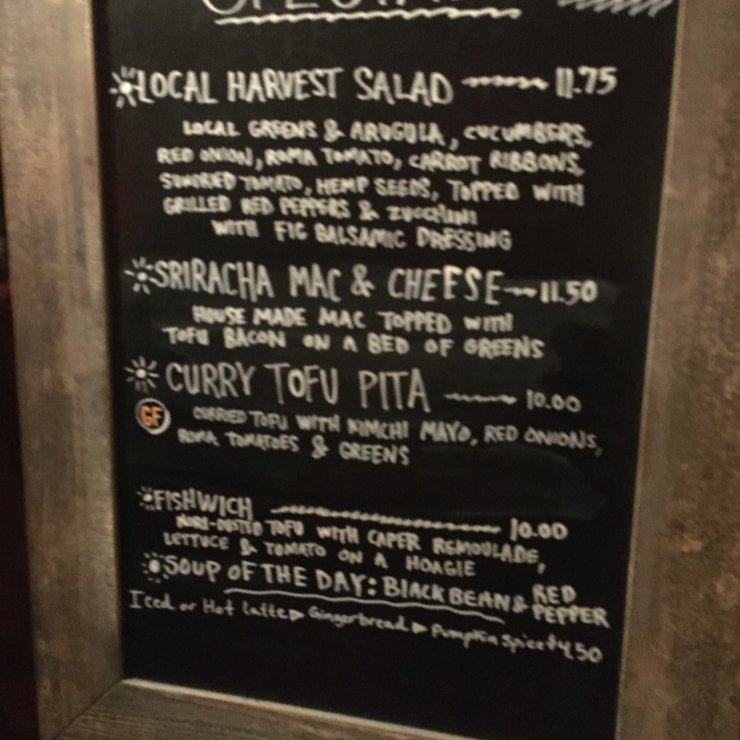 SPECIALS
LOCAL HARVEST SALAD 11.75
LOCAL GREENS & ARUGULA, CUCUMBERS,
RED ONION, ROMA TOMATO, CARROT RIBBONS,
SUNDRIED TOMATO, HEMP SEEDS, TOPPED WITH
GRILLED RED PEPPERS & ZUCCHINI
WITH FIG BALSAMIC DRESSING
SRIRACHA MAC & CHEESE 11.50
HOUSE MADE MAC TOPPED WITH
TOFU BACON ON A BED OF GREENS
CURRY TOFU PITA 10.00
GF CURRIED TOFU WITH KIMCHI MAYO, RED ONIONS,
ROMA TOMATOES & GREENS
FISHWICH 10.00
NORI-DUSTED TOFU WITH CAPER REMOULADE,
LETTUCE & TOMATO ON A HOAGIE
SOUP OF THE DAY: BLACK BEAN & RED PEPPER
Iced or Hot Latte Gingerbread Pumpkin Spice 4.50